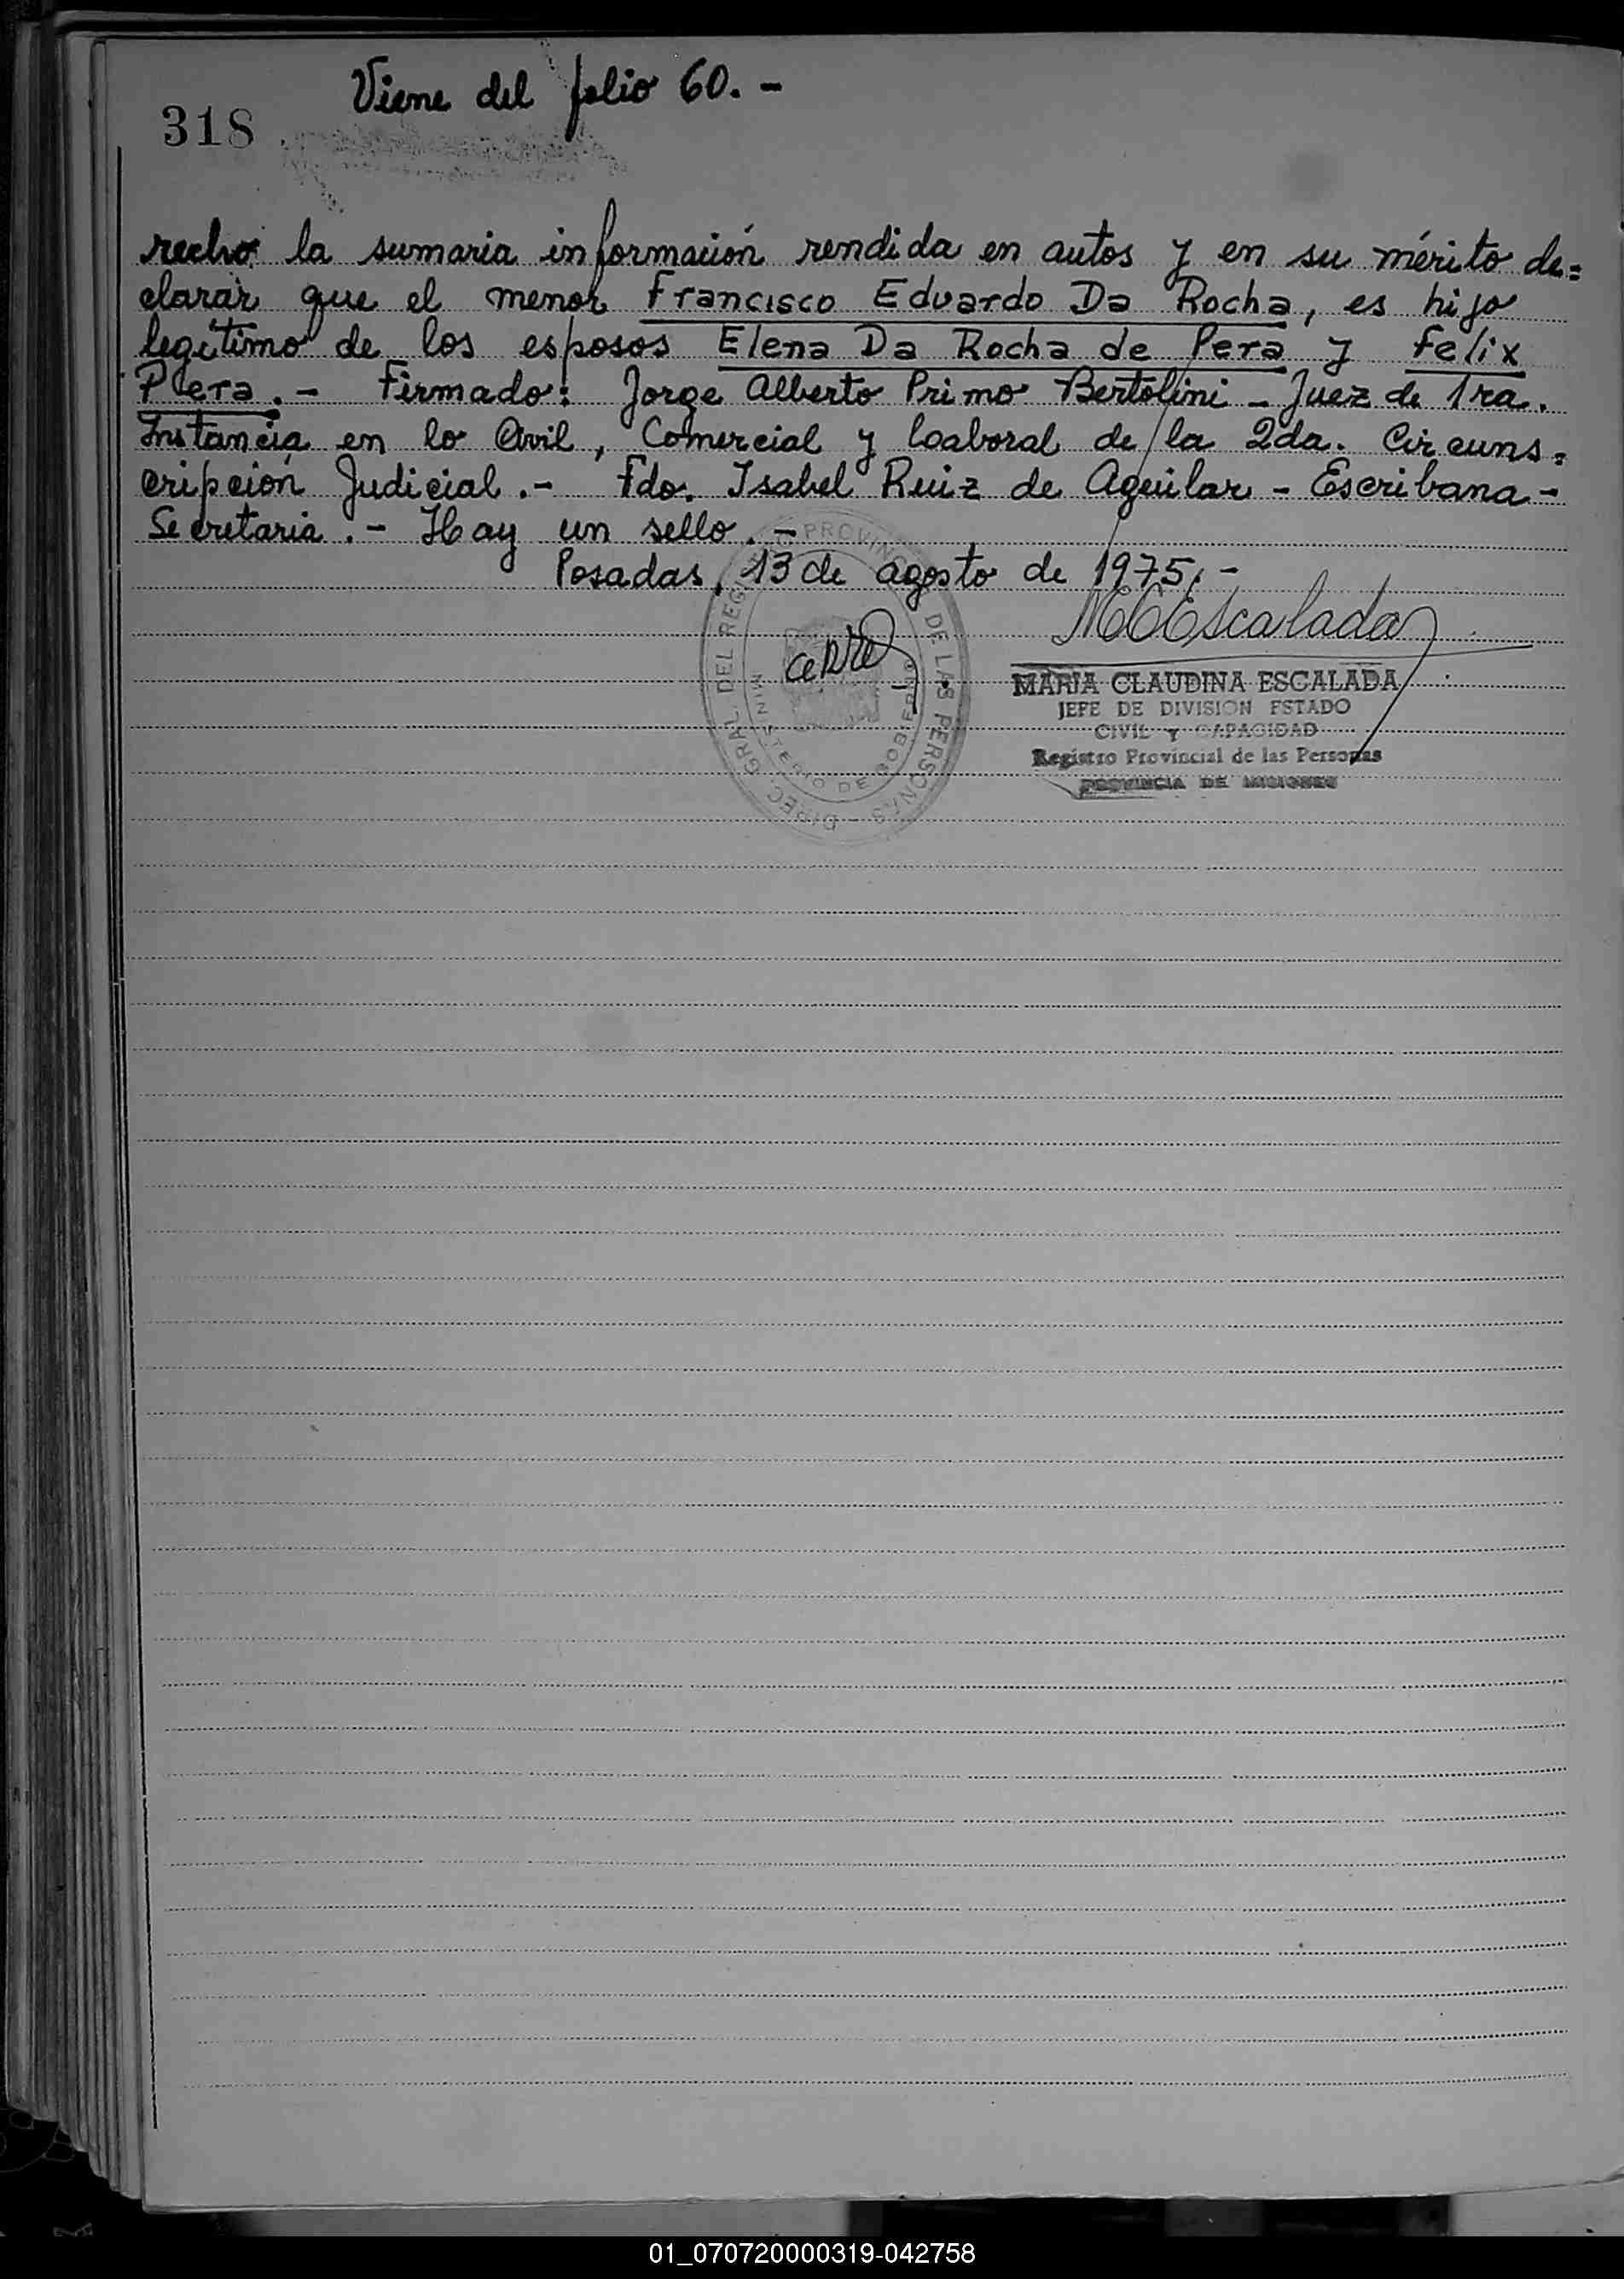 Viene del folio 60. -
318
recho la sumaria información rendida en autos y en su mérito de=
clarar que el menor Francisco Eduardo Da Rocha, es hijo
legítimo de los esposos Elena Da Rocha de Pera y Felix
Pera. - Firmado: Jorge Alberto Primo Bertolini - Juez de 1ra.
Instancia en lo Civil, Comercial y Laboral de la 2da. Circuns=
cripción Judicial. - Fdo. Isabel Ruiz de Aguilar - Escribana -
Secretaria. - Hay un sello. -
Posadas, 13 de agosto de 1975. -
MCEscalada
DIREC. GRAL. DEL REGISTRO PROVINCIAL DE LAS PERSONAS -
MINISTERIO DE GOBIERNO
MARIA CLAUDINA ESCALADA
JEFE DE DIVISION ESTADO
CIVIL Y CAPACIDAD
Registro Provincial de las Personas
PROVINCIA DE MISIONES
01_070720000319-042758